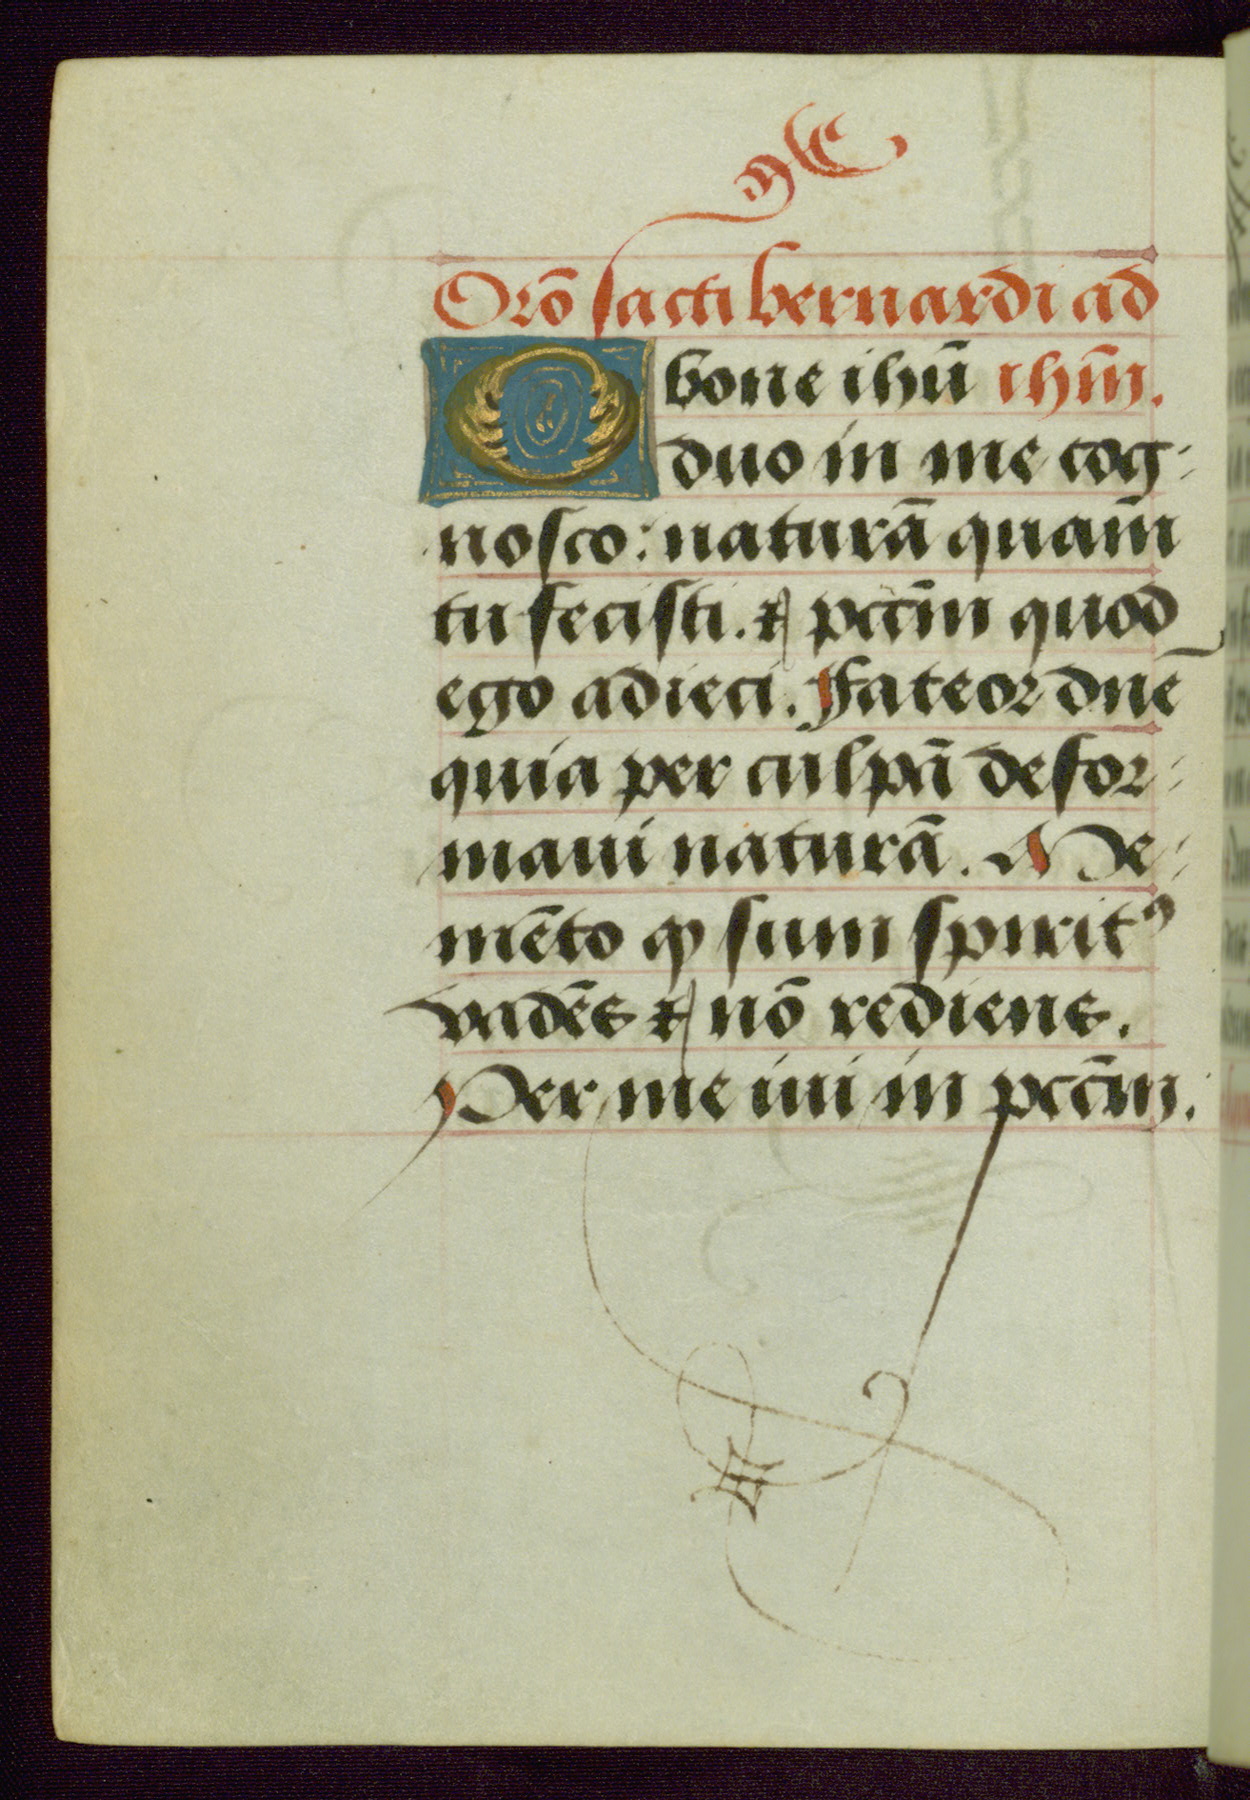 Orō sacti bernardi ad
O bone ihū ihm̄.
duo in me cog-
nosco: naturā quam̄
tu fecisti. & pccm̄ quod
ego adieci. Fateor dnē
quia per culpā defor-
maui naturā. Me-
mēto ꝙ sum spiritꝰ
vadēs & nō rediens.
Per me iui in pccm̄.